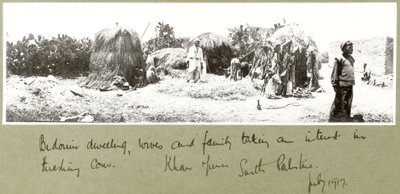 Bedouin dwelling, wives and family taking an interest in
thrashing corn. Khan Yunus South Palestine.
July 1917.